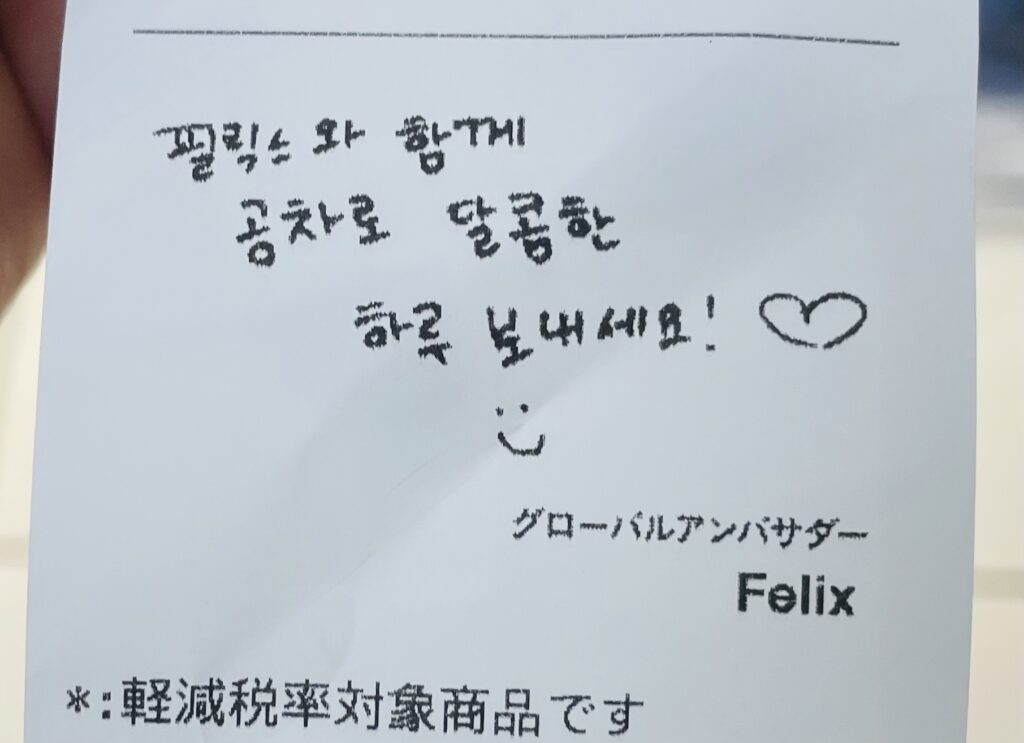 필릭스와 함께
공차로 달콤한
하루 보내세요!
グローバルアンバサダー
Felix
*:軽減税率対象商品です